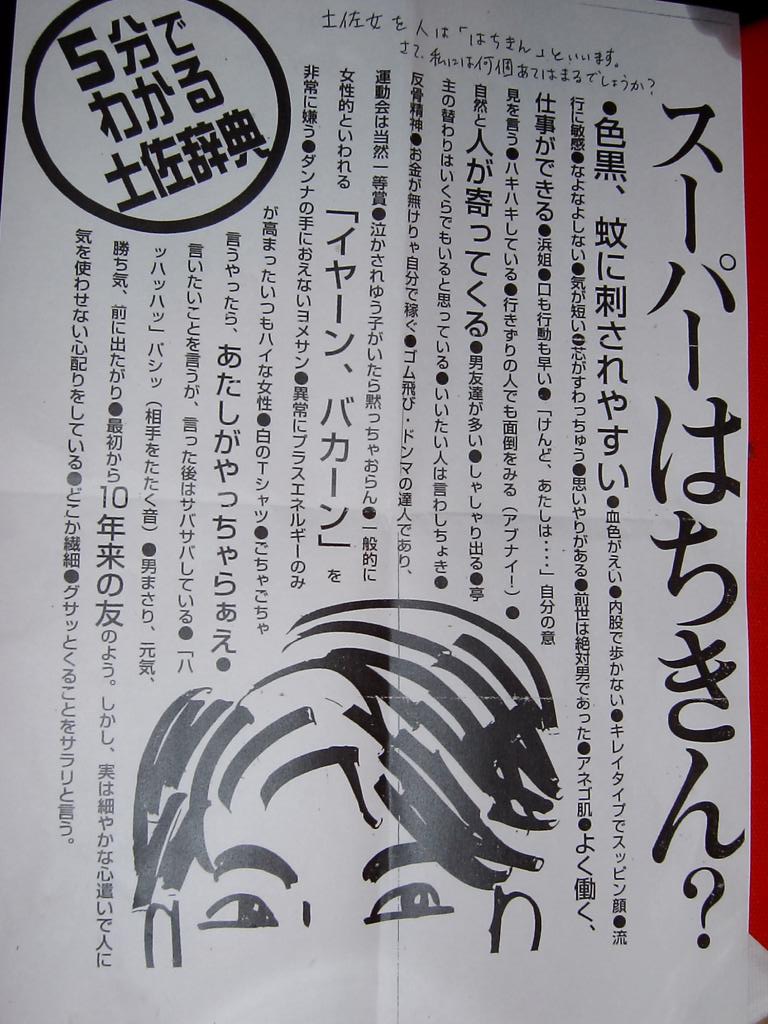 土佐女を人は「はちきん」といいます。
さて、私には何個あてはまるでしょうか?
スーパーはちきん?
●色黒、蚊に刺されやすい●血色がえい●内股で歩かない●キレイタイプでスッピン顔●流
行に敏感●なよなよしない●気が短い●芯がすわっちゅう●思いやりがある●前世は絶対男であった●アネゴ肌●よく働く、
仕事ができる●浜姐●口も行動も早い●「けんど、あたしは・・・」自分の意
見を言う●ハキハキしている●行きずりの人でも面倒をみる(アブナイ!)●
自然と人が寄ってくる●男友達が多い●しゃしゃり出る●亭
主の替わりはいくらでもいると思っている●いいたい人は言わしちょき●
反骨精神●お金が無けりゃ自分で稼ぐ●ゴム飛び・ドンマの達人であり、
運動会は当然一等賞●泣かされゆう子がいたら黙っちゃおらん●一般的に
女性的といわれる「イヤーン、バカーン」を
非常に嫌う●ダンナの手におえないヨメサン●異常にプラスエネルギーのみ
が高まったいつもハイな女性●白のTシャツ●ごちゃごちゃ
言うやったら、あたしがやっちゃらぁえ●
言いたいことを言うが、言った後はサバサバしている●「ハ
ッハッハッ」バシッ(相手をたたく音)●男まさり、元気、
勝ち気、前に出たがり●最初から10年来の友のよう。しかし、実は細やかな心遣いで人に
気を使わせない心配りをしている●どこか繊細●グサッとくることをサラリと言う。
5分で
わかる
土佐辞典